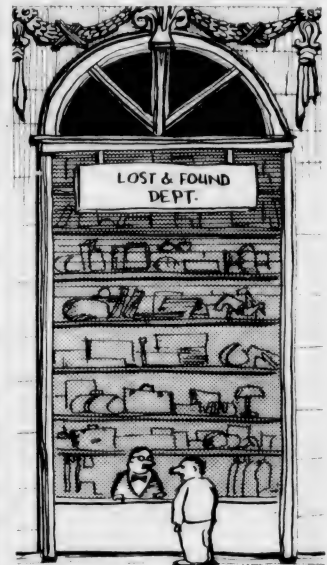 LOST & FOUND
DEPT.